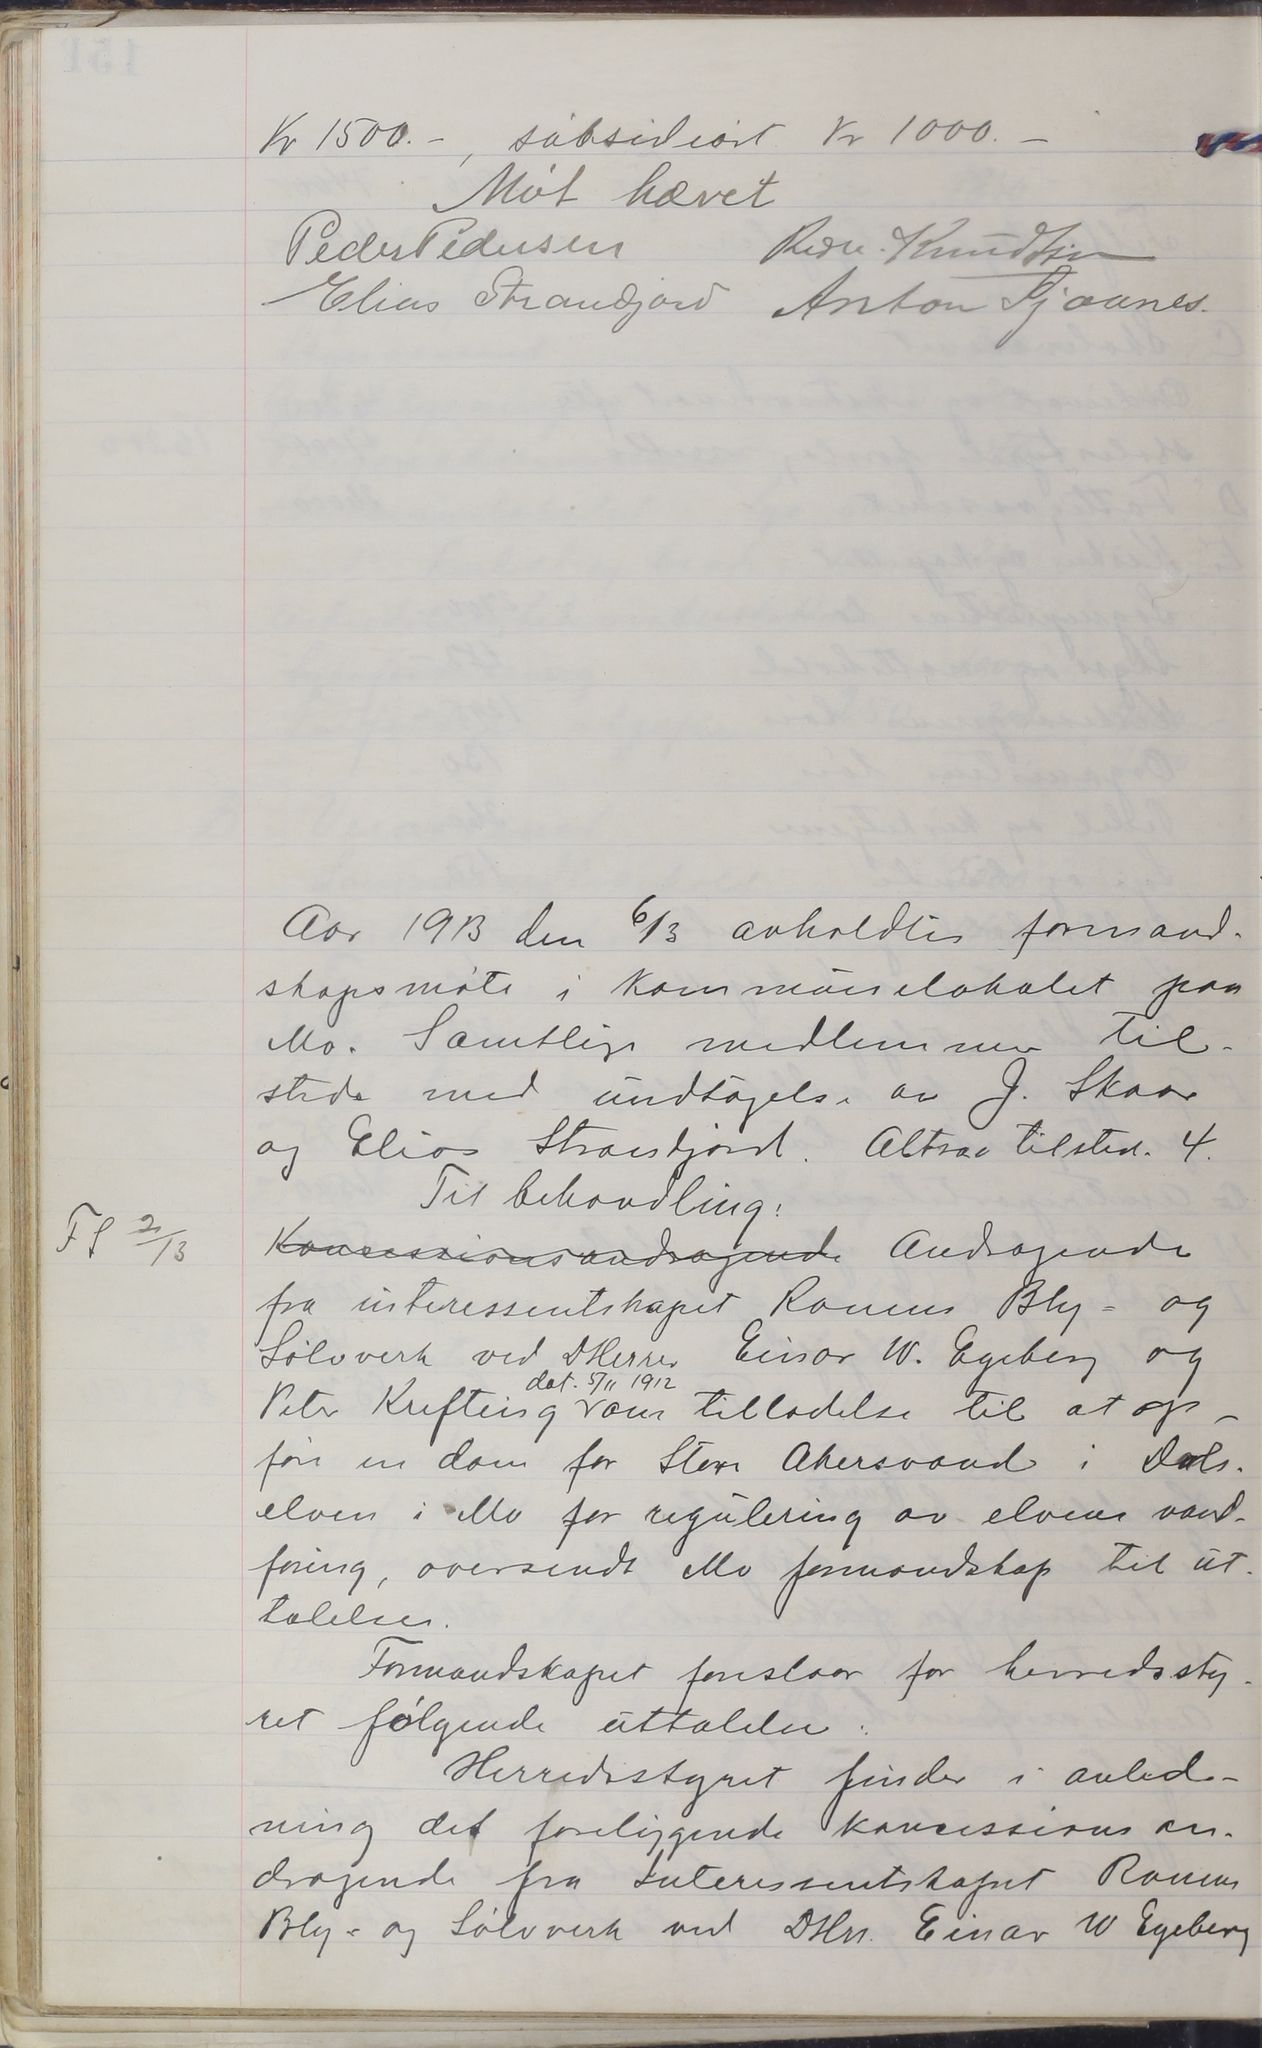 Kr 1500.-, subsidiært Kr 1000.-
Møt hævet
Peder Pedersen Knudsen
Elias Strandjord Anton
Aar 1913 den 6/3 avholdtes formand-
skapsmøte i kommunelokalet paa
Mo. Samtlige medlemmer til-
stede med undtagelse av J. Skaar
og Elias Strandjord. Altsaa tilsted. 4.
Til behandling:
FS 2/13
Koncessionsandragende Andragende
fra interessentskapet Ranens Bly- og
Sølvverk ved DHerrer Einar W. Egeberg og
dat. 5/11 1912
Peter Krefting om tilladelse til at op-
føre en dam for Store Akersvand i Dals-
elven i Mo for regulering av elvens vand-
føring, oversendt Mo formandskap til ut-
talelse.
Formandskapet foreslaar for herredssty-
ret følgende uttalelse:
Herredsstyret finder i anled-
ning det foreliggende koncessions an-
dragende fra Interessentskapet Ranens
Bly- og Sølvverk ved DHrr. Einar W Egeberg